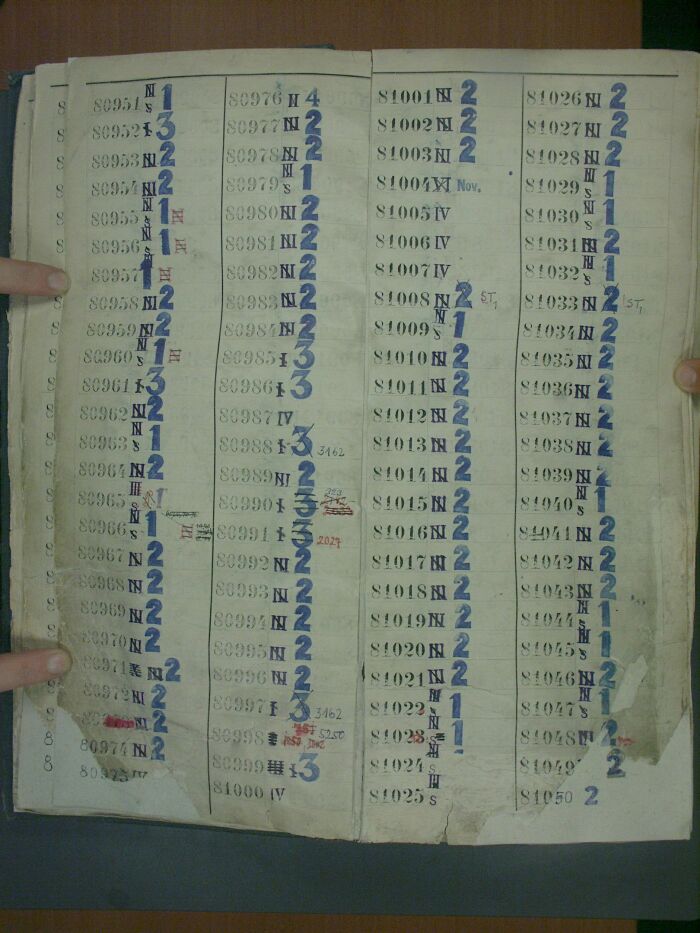 80951 N S 1
80952 I 3
80953 NI 2
80954 NI 2
80955 N S 1 III
80956 N S 1 III
80957 1 III
80958 NI 2
80959 NI 2
80960 N S 1 III
80961 I 3
80962 NI 2
80963 N S 1
80964 NI 2
80965 III S 1
80966 N S 1 III
80967 NI 2
80968 NI 2
80969 NI 2
80970 NI 2
80971 NI 2
80972 NI 2
NI 2
80974 NI 2
80975 IV
80976 N 4
80977 NI 2
80978 NI 2
80979 N S 1
80980 NI 2
80981 NI 2
80982 NI 2
80983 NI 2
80984 NI 2
80985 I 3
80986 I 3
80987 IV
80988 I 3 3162
80989 NI 2
80990 I 3
80991 I 3 2027
80992 NI 2
80993 NI 2
80994 NI 2
80995 NI 2
80996 NI 2
80997 I 3 3162
80998 5250
80999 I 3
81000 IV
81001 NI 2
81002 NI 2
81003 NI 2
81004 XI Nov.
81005 IV
81006 IV
81007 IV
81008 NI 2 ST1
81009 N S 1
81010 NI 2
81011 NI 2
81012 NI 2
81013 NI 2
81014 NI 2
81015 NI 2
81016 NI 2
81017 NI 2
81018 NI 2
81019 NI 2
81020 NI 2
81021 NI 2
81022 N S 1
81023 N 1
81024 N S
81025 N S
81026 NI 2
81027 NI 2
81028 NI 2
81029 N S 1
81030 N S 1
81031 NI 2
81032 N S 1
81033 NI 2 ST1
81034 NI 2
81035 NI 2
81036 NI 2
81037 NI 2
81038 NI 2
81039 NI 2
81040 N S 1
81041 NI 2
81042 NI 2
81043 NI 2
81044 N S 1
81045 N S 1
81046 NI 2
81047 N S 1
81048 NI 2
81049 2
81050 2